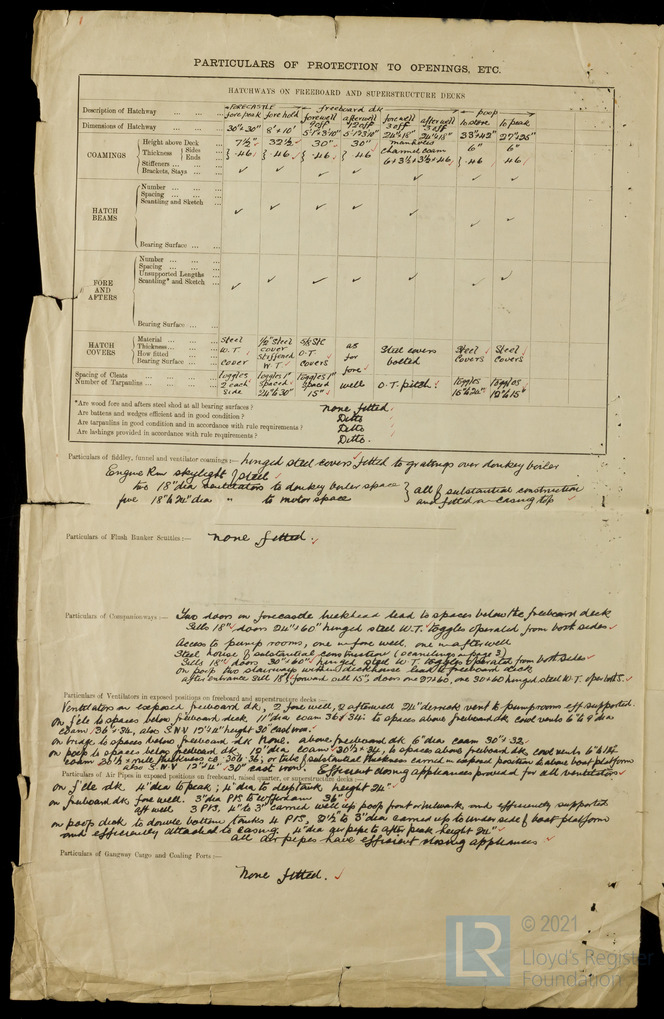 PARTICULARS OF PROTECTION TO OPENINGS, ETC.
HATCHWAYS ON FREEBOARD AND SUPERSTRUCTURE DECKS
Description of Hatchway
FORECASTLE forepeak fore hold freeboard dk forewell afterwell forewell afterwell poop to store to peak
Dimensions of Hatchway
30"x30" 8'x10' 9 off 5'1"x3'10" 12 off 5'1"x3'10" 3 off 24"x18" 3 off 24"x18" 33"x42" 27"x25"
COAMINGS
Height above Deck 7½" 32½ 30" 30" manholes 6" 6"
Thickness Sides Ends .46 .46 .46 .46 channel coam 6x3½x3½x.46 .46 .46
Stiffeners
Brackets, Stays
HATCH BEAMS
Number
Spacing
Scantling and Sketch
Bearing Surface
FORE AND AFTERS
Number
Spacing
Unsupported Lengths
Scantling* and Sketch
Bearing Surface
HATCH COVERS
Material
Thickness
How fitted
Bearing Surface
Steel W.T. cover
½" Steel cover stiffened W.T.
O.T. covers
as for fore
Steel covers bolted
Steel covers
Steel covers
Spacing of Cleats
Number of Tarpaulins
toggles 2 each side
toggles 1" spaced 24" & 30"
toggles 1" spaced 15"
well
O.T. pitch.
toggles 16" & 20"
toggles 12" & 15"
*Are wood fore and afters steel shod at all bearing surfaces? none fitted.
Are battens and wedges efficient and in good condition? Ditto
Are tarpaulins in good condition and in accordance with rule requirements? Ditto
Are lashings provided in accordance with rule requirements? Ditto.
Particulars of fiddley, funnel and ventilator coamings:— hinged steel covers fitted to gratings over donkey boiler
Engine Rm skylight of steel
two 18" dia ventilators to donkey boiler space } all of substantial construction
five 18" & 24" dia " to motor space and fitted on casing top
Particulars of Flush Bunker Scuttles:— None fitted.
Particulars of Companionways:— Two doors on forecastle bulkhead lead to spaces below the freeboard deck
Sills 18" doors 24"x60" hinged steel W.T. toggles operated from both sides
Access to pump rooms, one in fore well, one in afterwell
Steel house of substantial construction (scantlings on page 3)
Sills 18" doors 30"x60" hinged steel W.T. toggles operated from both sides
on poop two stairways within deckhouse lead to freeboard deck
after entrance sill 18" forward sill 15", doors one 27x60, one 30x60 hinged steel W.T. oper both S.
Particulars of Ventilators in exposed positions on freeboard and superstructure decks:—
Ventilators on exposed freeboard dk, 2 fore well, 2 afterwell 24" derrick vent to pumprooms eff supported.
on f'cle to spaces below freeboard deck 11" dia coam 36 & 34. to spaces above freeboard dk cowl vents 6" & 9" dia
coam 36" & 34. also S N V 12"x4" height 30" cast iron.
on bridge to spaces below freeboard dk None. above freeboard dk 6" dia coam 30" x 32.
on poop to spaces below freeboard dk, 12" dia coam 30½ x .34, to spaces above freeboard dk cowl vents
also S.N.V 12"x4" .30" cast iron. Efficient closing appliances provided for all ventilators
Particulars of Air Pipes in exposed positions on freeboard, raised quarter, or superstructure decks:—
on f'cle dk 4" dia to peak; 4" dia to deeptank height 24"
on freeboard dk fore well. 3" dia P&S to cofferdam 36"
aft well. 3 P&S. 4" & 3" carried well up poop front or bulwark and efficiently supported.
on poop deck to double bottom tanks 4 P&S, 2½ to 3" dia carried up to underside of boat platform
and efficiently attached to casing. 4" dia air pipe to after peak height 24"
all air pipes have efficient closing appliances
Particulars of Gangway Cargo and Coaling Ports:—
None fitted.
LR
© 2021
Lloyd's Register
Foundation